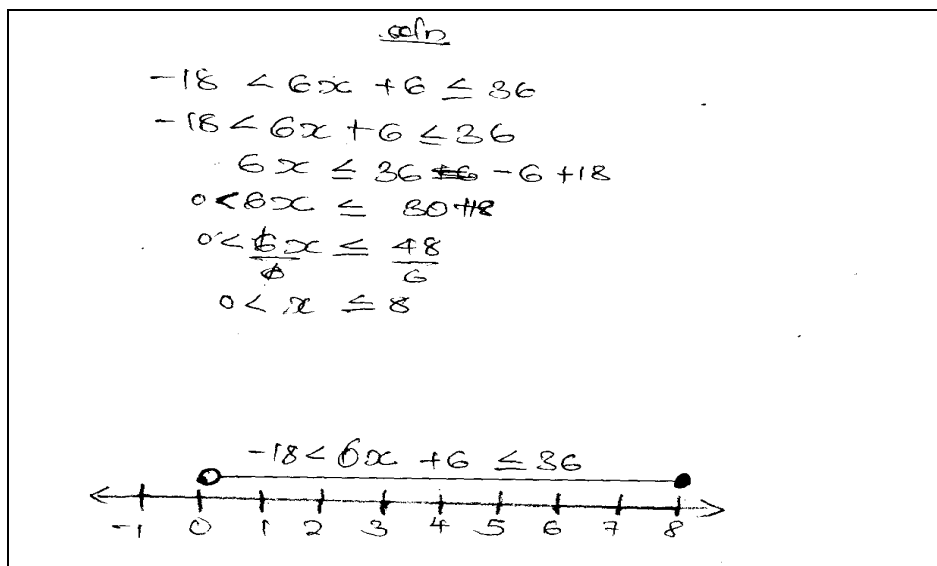 soln
-18 < 6x + 6 ≤ 36
-18 < 6x + 6 ≤ 36
6x ≤ 36 - 6 + 18
0 < 6x ≤ 30+18
0 < 6x/6 ≤ 48/6
0 < x ≤ 8
-18 < 6x + 6 ≤ 36
-1 0 1 2 3 4 5 6 7 8